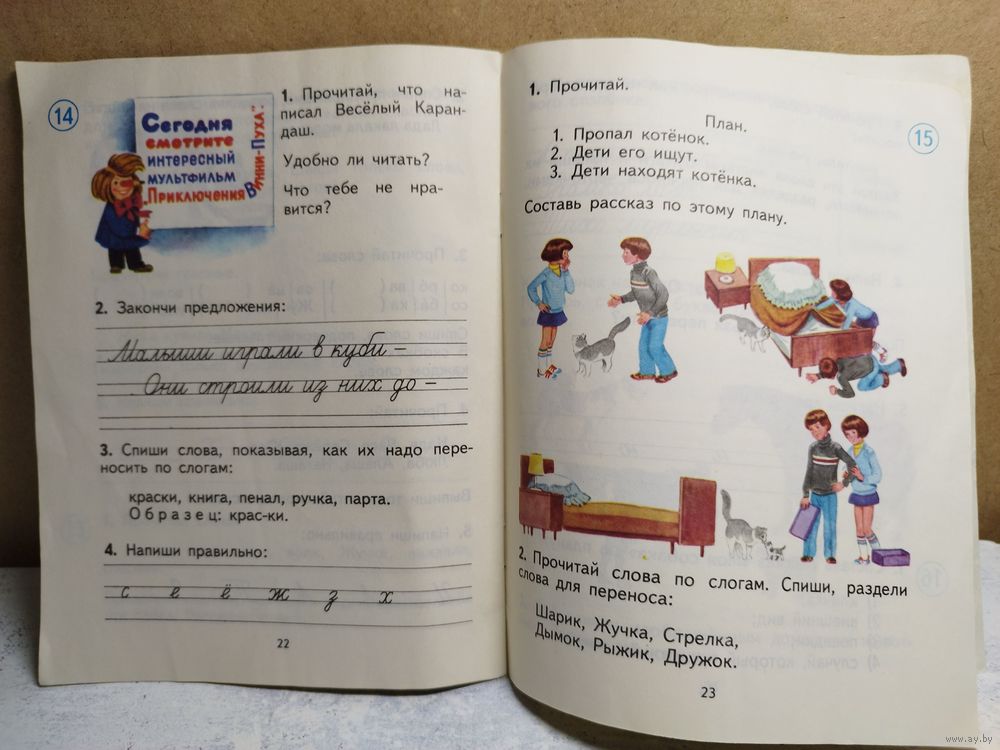 14
Сегодня
смотрите
интересный
мультфильм
„Приключения
Винни-Пуха".
1. Прочитай, что на-
писал Весёлый Каран-
даш.
Удобно ли читать?
Что тебе не нра-
вится?
2. Закончи предложения:
Малыши играли в куби –
Они строили из них до –
3. Спиши слова, показывая, как их надо пере-
носить по слогам:
краски, книга, пенал, ручка, парта.
Образец: крас-ки.
4. Напиши правильно:
с е ё ж з х
22
1. Прочитай.
15
План.
1. Пропал котёнок.
2. Дети его ищут.
3. Дети находят котёнка.
Составь рассказ по этому плану.
2. Прочитай слова по слогам. Спиши, раздели
слова для переноса:
Шарик, Жучка, Стрелка,
Дымок, Рыжик, Дружок.
23
www.ay.by